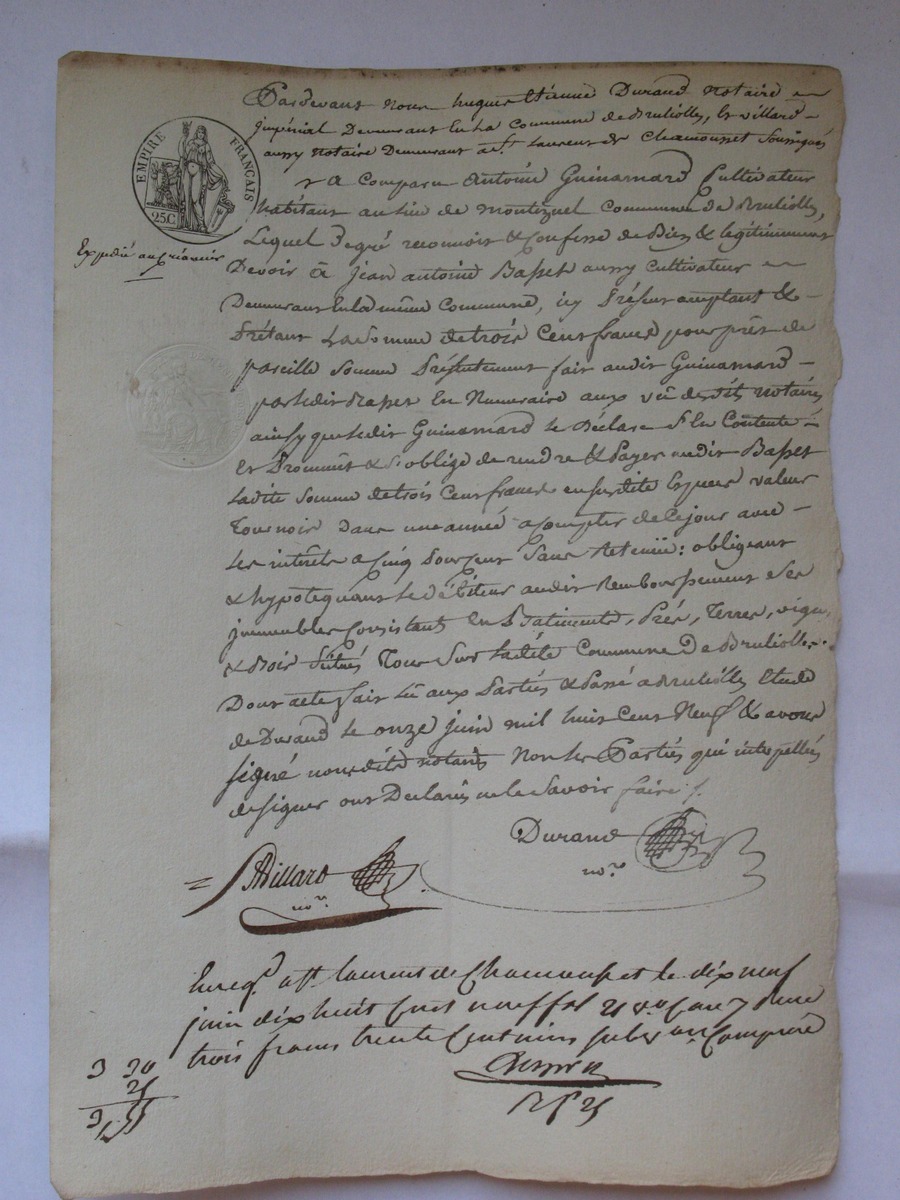 EMPIRE FRANÇAIS
25C
Expedié au créancier
Pardevant nous hugues Etienne Durand notaire
impérial Demeurant En la Commune de Bruliolles, Et villard
aussy notaire Demeurant a St Laurent de Chamousset Soussignés
a Comparu Antoine Guinamard Cultivateur
habitant au lieu de montezuel Commune De Bruliolles,
Lequel De gré reconnois & Confesse de Bien & legitimement
Devoir à jean antoine Basset aussy Cultivateur
Demeurant En la même Commune, icy Présent acceptant &
Prétant La somme de trois Cent francs pour prêt de
pareille somme Présentement fait audit Guinamard
par ledit Basset En Numeraire aux vû desdits notaires
ainsy que ledit Guinamard se Déclare Contenté
Et Promet & s'oblige de rendre & Payer audit Basset
Ladite somme de trois Cent francs valeur
Tournois Dans une année a Compter de Ce jour avec
Les intérêts a Cinq pour Cent Sans Retenüe : obligeant
& hypotequant le débiteur audit Remboursement Ses
immeubles Consistant En Batiments, Prés, Terres, vigne
& Bois Situés Tous Sur Ladite Commune De Brulioles.
Dont acte fait Lû aux Parties & Passé a Brulliolles Etude
de Durand le onze juin mil huit Cent Neuf & avons
signé nousdits notaires Non les Parties qui interpellés
de signer ont Déclarés ne le Savoir faire
Durand
nore
Villard
nore
Enreg. a St laurent de Chamousset le dix neuf
juin dix huit Cent neuf fol
trois francs trente Centimes subv.on Comprise
3 30
25
3,55